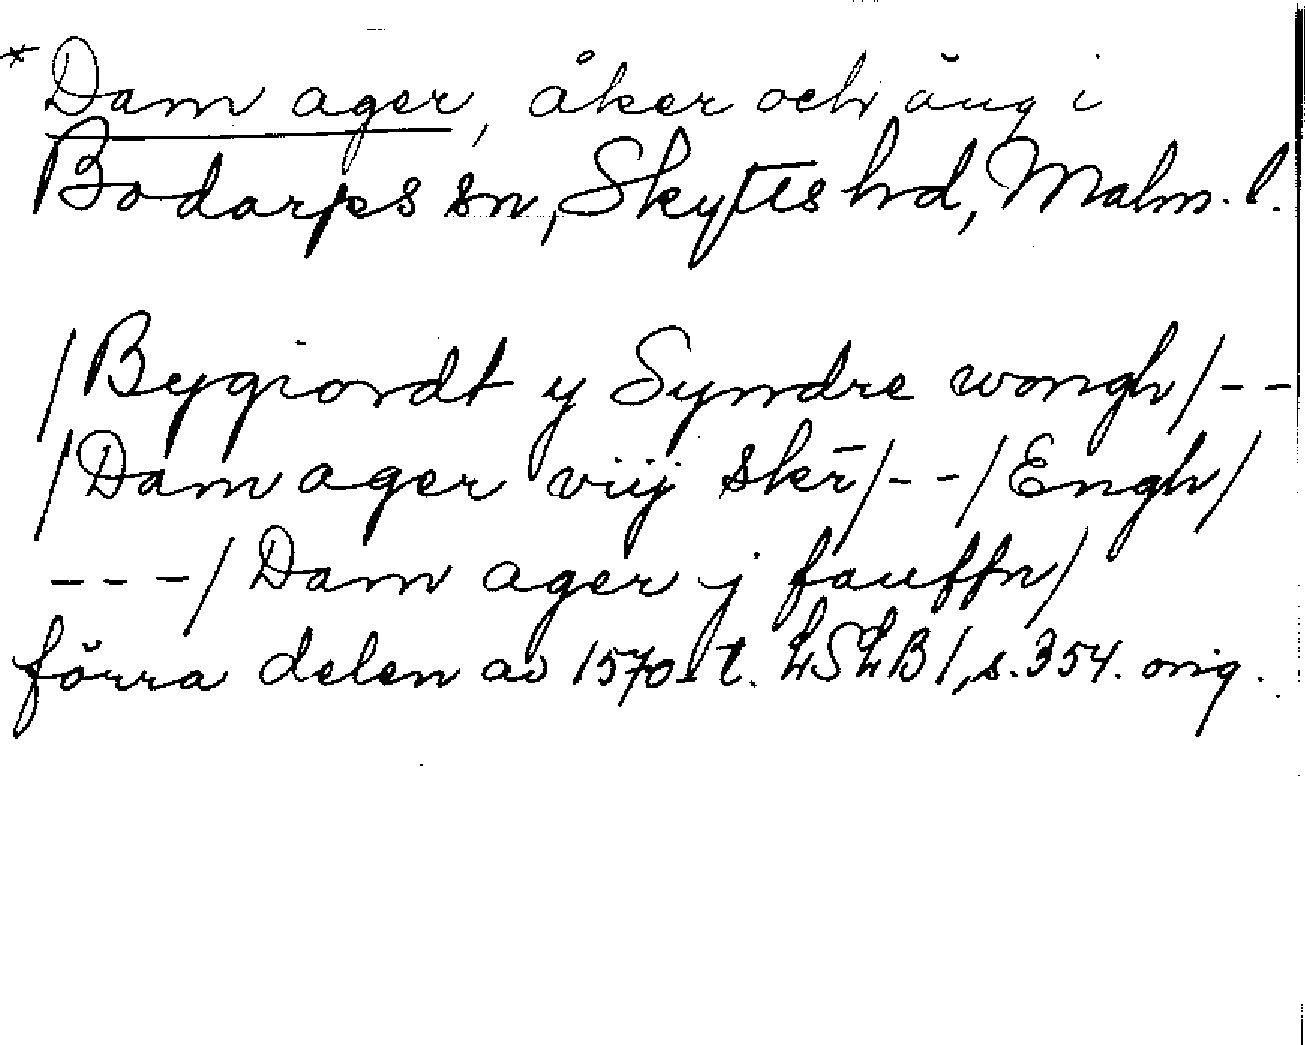 * Dam ager, åker och äng i
Bodarps sn, Skytts hd, Malm. l.
/Bygiordt y Syndre wongh/--
/Dam ager viij skr̄/--/Engh/
---/Dam ager j fauffn/
förra delen av 1570-t. LSLB 1, s. 354. orig.